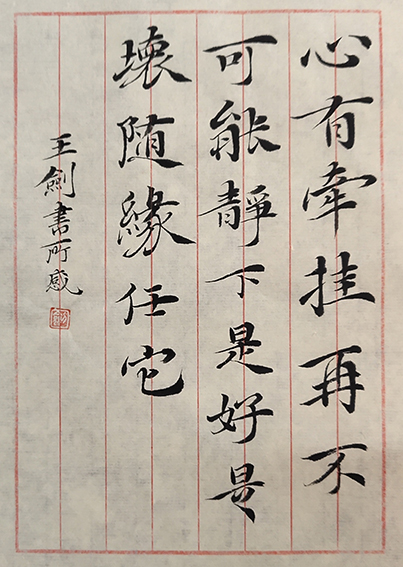 心有牵挂再不
可能靜下是好是
壞随緣任它
王劍書所感